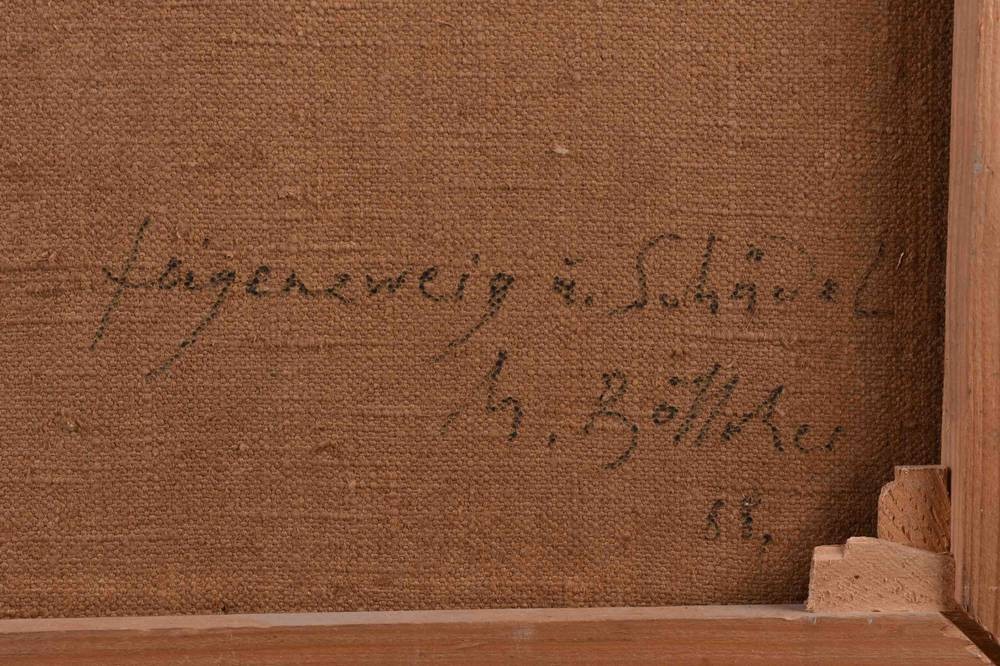 Feigenzweig u. Schädel
M. Böttcher
88,